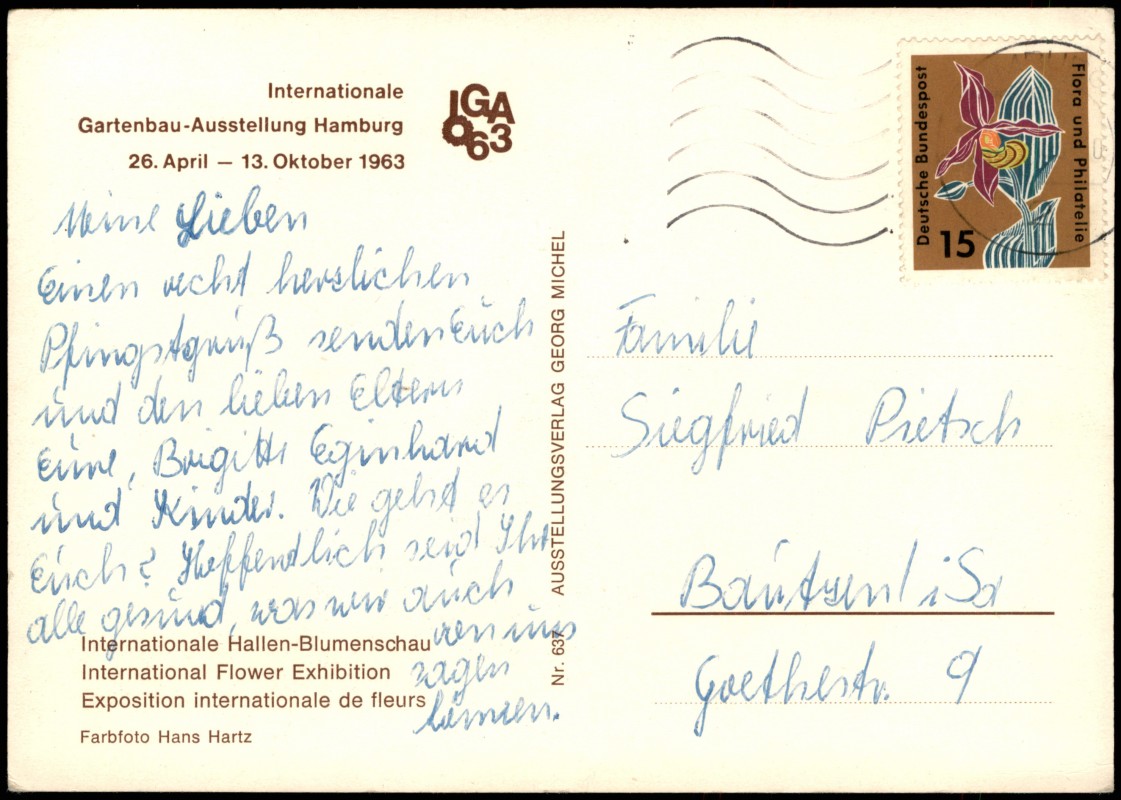 Internationale
Gartenbau-Ausstellung Hamburg
26. April – 13. Oktober 1963
IGA
63
Meine Lieben
Einen recht herzlichen
Pfingstgruß senden Euch
und den lieben Eltern
Eure, Brigitte Eginhard
und Kinder. Wie gehst es
Euch? Hoffendlich seid Ihr
alle gesund, was wir auch
von uns
sagen
können.
Internationale Hallen-Blumenschau
International Flower Exhibition
Exposition internationale de fleurs
Farbfoto Hans Hartz
Nr. 637 AUSSTELLUNGSVERLAG GEORG MICHEL
Deutsche Bundespost
15
Flora und Philatelie
Familie
Siegfried Pietsch
Bautzen/ i Sa
Goethestr. 9